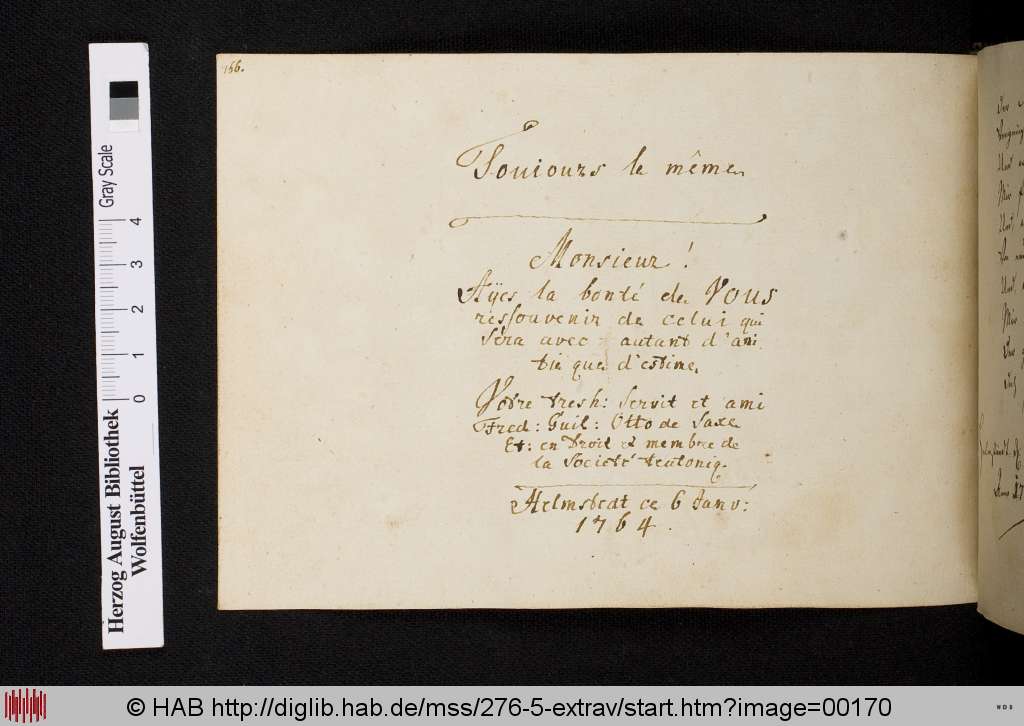 166.
Toujours le même
Monsieur!
Aÿes la bonté de VOUS
ressouvenir de celui qui
sera avec autant d'ami
tié que d'estime
Votre tresh: servit et ami
Fred: Guil: Otto de Saxe
Et: en Droit et membre de
la Societé teutoniq.
Helmstedt ce 6 Janv:
1764.
Gray Scale
0 1 2 3 4
Herzog August Bibliothek
Wolfenbüttel
© HAB http://diglib.hab.de/mss/276-5-extrav/start.htm?image=00170